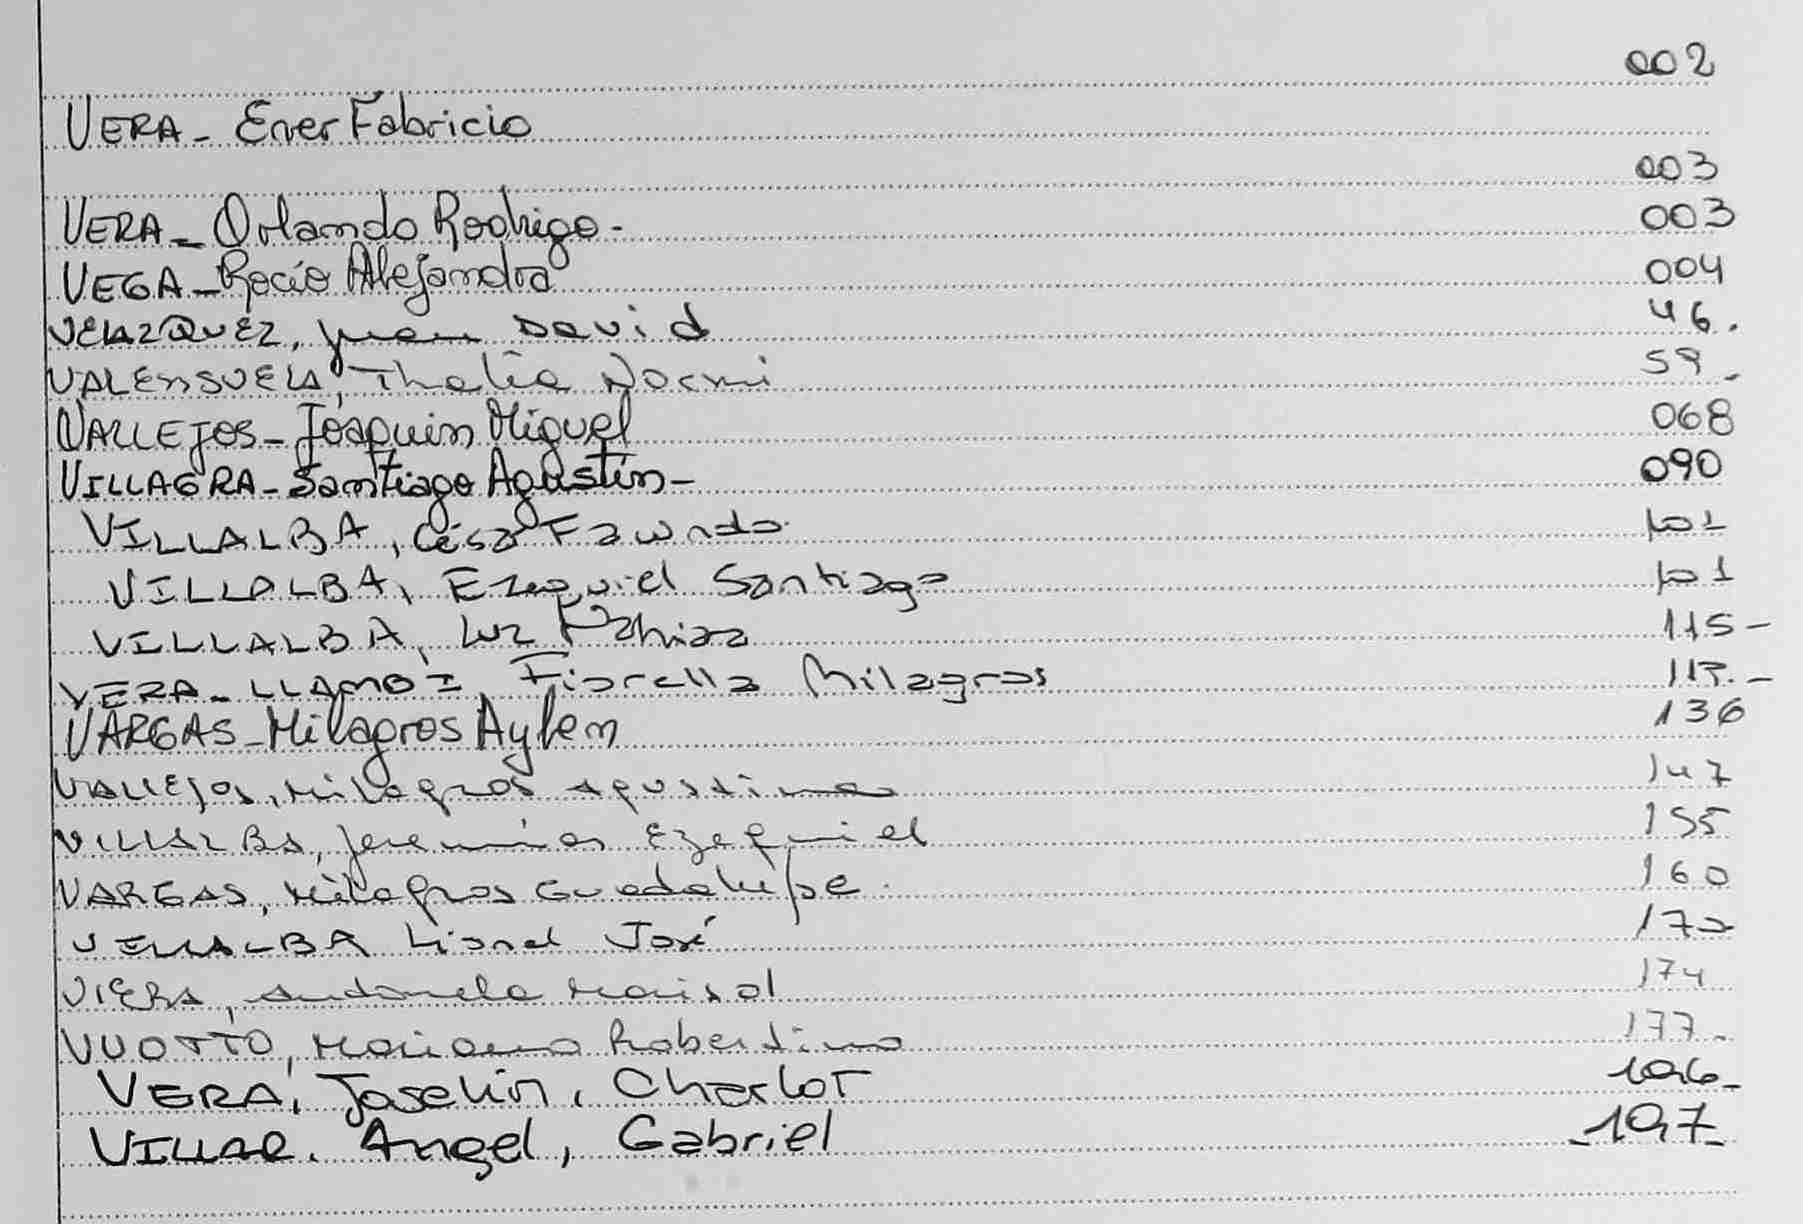 002
VERA - Ener Fabricio
003
VERA - Orlando Rodrigo - 003
VEGA - Rocío Alejandra 004
VELAZQUEZ, Juan David 46.
VALENSUELA, Thalía Noemi 59 -
VALLEJOS - Joaquin Miguel 068
VILLAGRA - Santiago Agustín - 090
VILLALBA, César Facundo 101
VILLALBA, Ezequiel Santiago 101
VILLALBA, Luz 115 -
VERA - LLAMBI, Fiorella Milagros 117. -
VARGAS - Milagros Aylen 136
VALLEJOS, Milagros Agustina 147
VILLALBA, Jeremías Ezequiel 155
VARGAS, Milagros Guadalupe. 160
VILLALBA Lionel José 172
VIERA, Antonela Marisol 174
VUOTTO, Mariano Robertino 177 -
VERA, Joselin, Charlot 196 -
VILLAR. Angel, Gabriel - 197 -